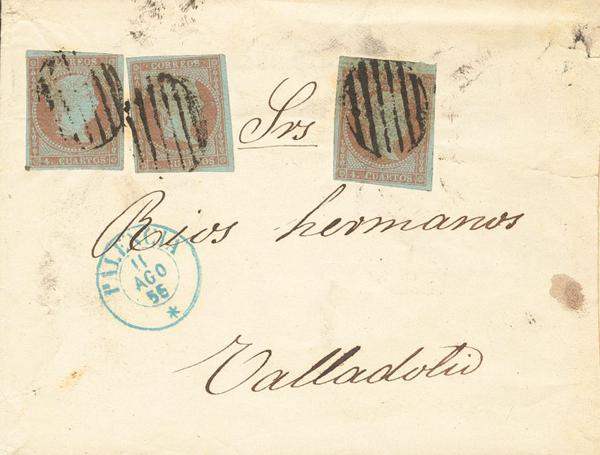 CORREOS
4. CUARTOS
CORREOS
CUARTOS
4. CUARTOS
Srs
Rios hermanos
PALENCIA
11
AGO
56
Valladolid